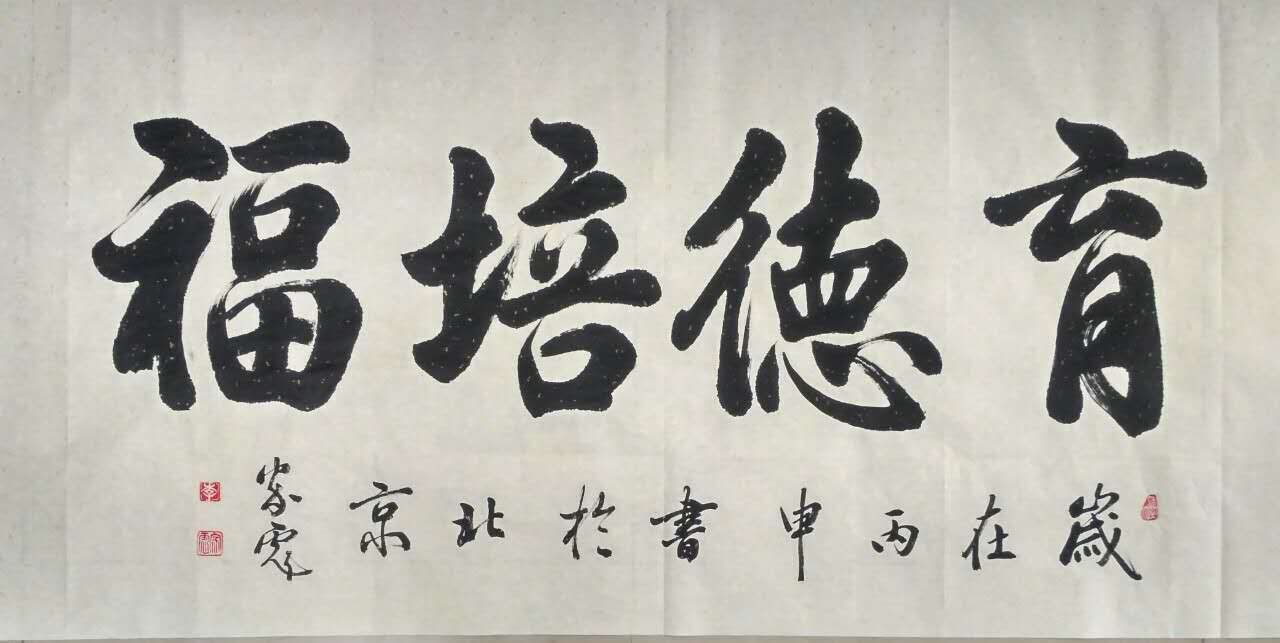 育德培福
歲在丙申書於北京